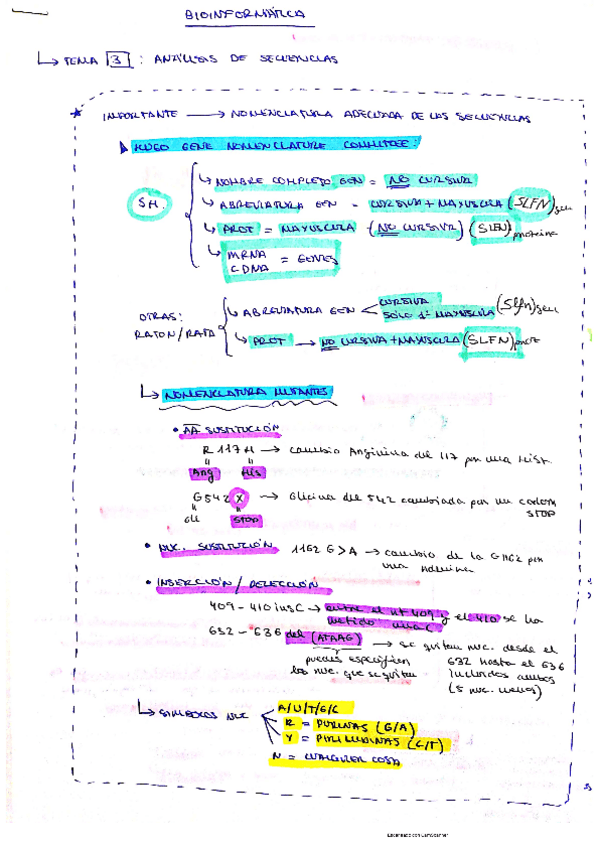 BIOINFORMÁTICA
TEMA 3 : ANÁLISIS DE SECUENCIAS
IMPORTANTE → NOMENCLATURA ADECUADA DE LAS SECUENCIAS
HUGO GENE NOMENCLATURE COMMITTEE:
SH.
NOMBRE COMPLETO GEN = NO CURSIVA
ABREVIATURA GEN = CURSIVA + MAYUSCULA (SLFN) gen
PROT = MAYUSCULA (NO CURSIVA) (SLFN) proteina
MRNA
CDNA = GENES
OTRAS:
RATON/RATA
ABREVIATURA GEN < CURSIVA
SOLO 1ª MAYUSCULA (Slfn) gen
PROT → NO CURSIVA + MAYUSCULA (SLFN) prote
NOMENCLATURA MUTANTES
• AA SUSTITUCIÓN
R 117 H → cambio Arginina del 117 por una Hist.
Arg His
G 542 X → Glicina del 542 cambiada por un codon STOP
Gli STOP
• NUC. SUSTITUCIÓN 1162 G > A → cambio de la G1162 por
una Adenina
• INSERCIÓN / DELECCIÓN
409 - 410 insC → entre el nt 409 y el 410 se ha
metido una C
632 - 636 del (ATAAG) → se quitan nuc. desde el
puedes especificar 632 hasta el 636
los nuc. que se quitan incluidos ambos
(5 nuc. menos)
NUC
A/U/T/G/C
R = PURINAS (G/A)
Y = PIRIMIDINAS (C/T)
N = CUALQUIER COSA
Escaneado con CamScanner